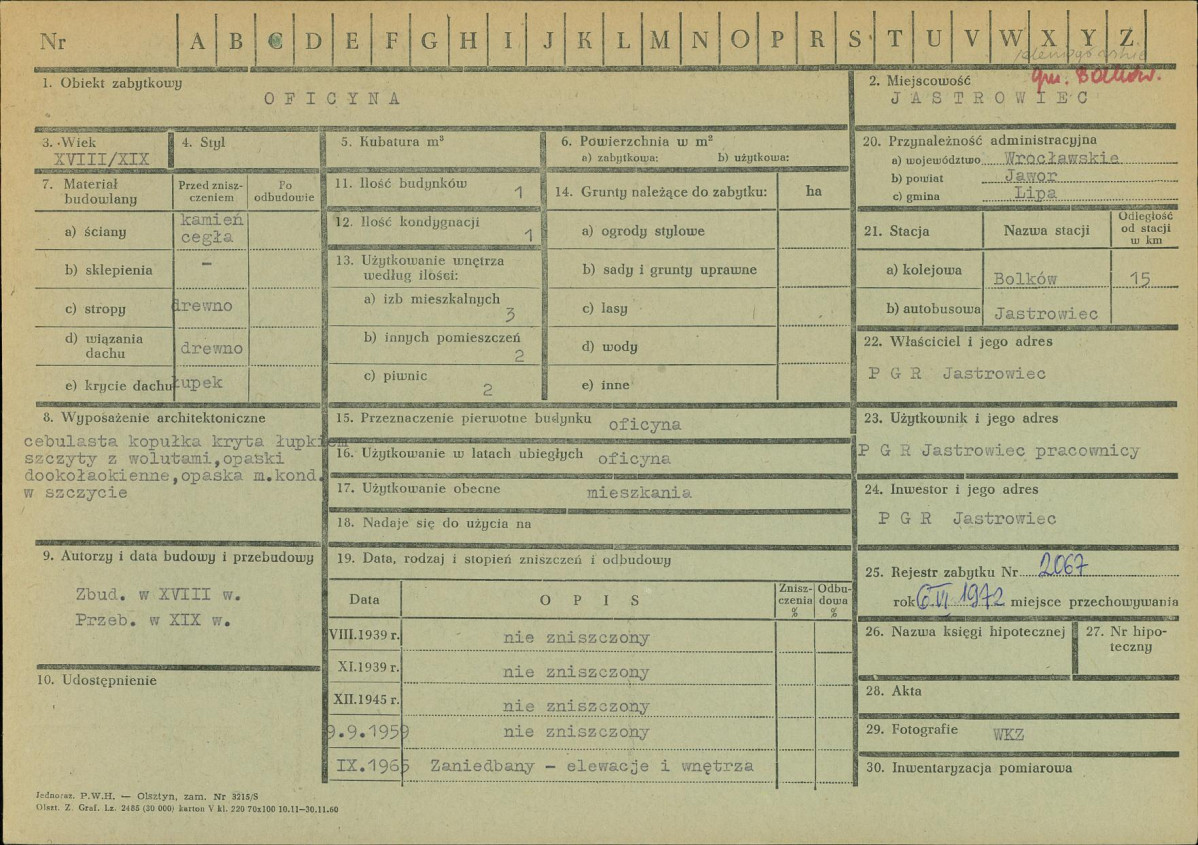 Nr A B C D E F G H I J K L M N O P R S T U V W X Y Z
gm. Bolków.
1. Obiekt zabytkowy
OFICYNA
2. Miejscowość
JASTROWIEC
3. Wiek
XVIII/XIX
4. Styl
5. Kubatura m³
6. Powierzchnia w m²
a) zabytkowa: b) użytkowa:
7. Materiał budowlany
Przed zniszczeniem
Po odbudowie
a) ściany
kamień
cegła
b) sklepienia –
c) stropy drewno
d) wiązania
dachu drewno
e) krycie dachu łupek
11. Ilość budynków 1
12. Ilość kondygnacji 1
13. Użytkowanie wnętrza
według ilości:
a) izb mieszkalnych
3
b) innych pomieszczeń
2
c) piwnic
2
14. Grunty należące do zabytku: ha
a) ogrody stylowe
b) sady i grunty uprawne
c) lasy
d) wody
e) inne
20. Przynależność administracyjna
a) województwo Wrocławskie
b) powiat Jawor
c) gmina Lipa
21. Stacja
Nazwa stacji
Odległość
od stacji
w km
a) kolejowa Bolków 15
b) autobusowa Jastrowiec
22. Właściciel i jego adres
P G R Jastrowiec
8. Wyposażenie architektoniczne
cebulasta kopułka kryta łupkiem
szczyty z wolutami,opaski
dookołaokienne,opaska m.kond.
w szczycie
15. Przeznaczenie pierwotne budynku oficyna
16. Użytkowanie w latach ubiegłych oficyna
17. Użytkowanie obecne mieszkania
18. Nadaje się do użycia na
23. Użytkownik i jego adres
P G R Jastrowiec pracownicy
24. Inwestor i jego adres
P G R Jastrowiec
9. Autorzy i data budowy i przebudowy
Zbud. w XVIII w.
Przeb. w XIX w.
10. Udostępnienie
19. Data, rodzaj i stopień zniszczeń i odbudowy
Data
OPIS
Znisz-
czenia
%
Odbu-
dowa
%
VIII.1939 r. nie zniszczony
XI.1939 r. nie zniszczony
XII.1945 r. nie zniszczony
9.9.1959 nie zniszczony
IX.1965 Zaniedbany – elewacje i wnętrza
25. Rejestr zabytku Nr 2067
rok 6 VI 1972 miejsce przechowywania
26. Nazwa księgi hipotecznej
27. Nr hipo-
teczny
28. Akta
29. Fotografie WKZ
30. Inwentaryzacja pomiarowa
Jednoraz. P.W.H. — Olsztyn, zam. Nr 3215/S
Olszt. Z. Graf. Lz. 2485 (30 000) karton V kl. 220 70x100 10.11—30.11.60